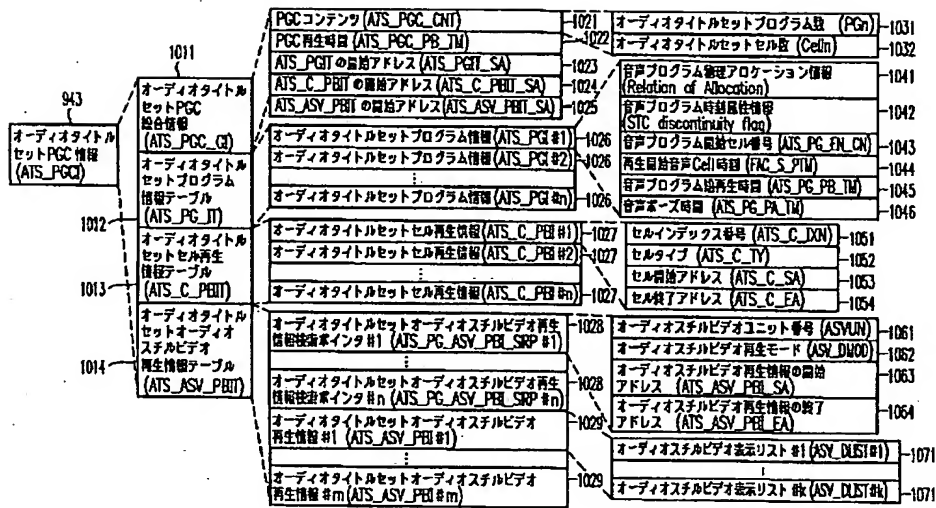 943
オーディオタイトル
セットPGC情報
(ATS_PGCI)
1011
オーディオタイトル
セットPGC
総合情報
(ATS_PGC_GI)
オーディオタイトル
セットプログラム
情報テーブル
(ATS_PG_IT)
1012
オーディオタイトル
セットセル再生
情報テーブル
(ATS_C_PBIT)
1013
オーディオタイトル
セットオーディオ
スチルビデオ
再生情報テーブル
(ATS_ASV_PBIT)
1014
PGCコンテンツ (ATS_PGC_CNT) 1021
PGC再生時間 (ATS_PGC_PB_TM) 1022
ATS_PGITの開始アドレス (ATS_PGIT_SA) 1023
ATS_C_PBITの開始アドレス (ATS_C_PBIT_SA) 1024
ATS_ASV_PBITの開始アドレス (ATS_ASV_PBIT_SA) 1025
オーディオタイトルセットプログラム情報 (ATS_PGI #1) 1026
オーディオタイトルセットプログラム情報 (ATS_PGI #2) 1026
オーディオタイトルセットプログラム情報 (ATS_PGI #n) 1026
オーディオタイトルセットセル再生情報 (ATS_C_PBI #1) 1027
オーディオタイトルセットセル再生情報 (ATS_C_PBI #2) 1027
オーディオタイトルセットセル再生情報 (ATS_C_PBI #n) 1027
オーディオタイトルセットオーディオスチルビデオ再生
情報検索ポインタ #1 (ATS_PG_ASV_PBI_SRP #1) 1028
オーディオタイトルセットオーディオスチルビデオ再生
情報検索ポインタ #n (ATS_PG_ASV_PBI_SRP #n) 1028
オーディオタイトルセットオーディオスチルビデオ
再生情報 #1 (ATS_ASV_PBI #1) 1029
オーディオタイトルセットオーディオスチルビデオ
再生情報 #m (ATS_ASV_PBI #m) 1029
オーディオタイトルセットプログラム数 (PGn) 1031
オーディオタイトルセットセル数 (Celln) 1032
音声プログラム物理アロケーション情報
(Relation of Allocation) 1041
音声プログラム時刻属性情報
(STC discontinuity flag) 1042
音声プログラム開始セル番号 (ATS_PG_EN_CN) 1043
再生開始音声Cell時刻 (FAC_S_PTM) 1044
音声プログラム総再生時間 (ATS_PG_PB_TM) 1045
音声ポーズ時間 (ATS_PG_PA_TM) 1046
セルインデックス番号 (ATS_C_IXN) 1051
セルタイプ (ATS_C_TY) 1052
セル開始アドレス (ATS_C_SA) 1053
セル終了アドレス (ATS_C_EA) 1054
オーディオスチルビデオユニット番号 (ASVUN) 1061
オーディオスチルビデオ再生モード (ASV_DMOD) 1062
オーディオスチルビデオ再生情報の開始
アドレス (ATS_ASV_PBI_SA) 1063
オーディオスチルビデオ再生情報の終了
アドレス (ATS_ASV_PBI_EA) 1064
オーディオスチルビデオ表示リスト #1 (ASV_DLIST#1) 1071
オーディオスチルビデオ表示リスト #k (ASV_DLIST#k) 1071